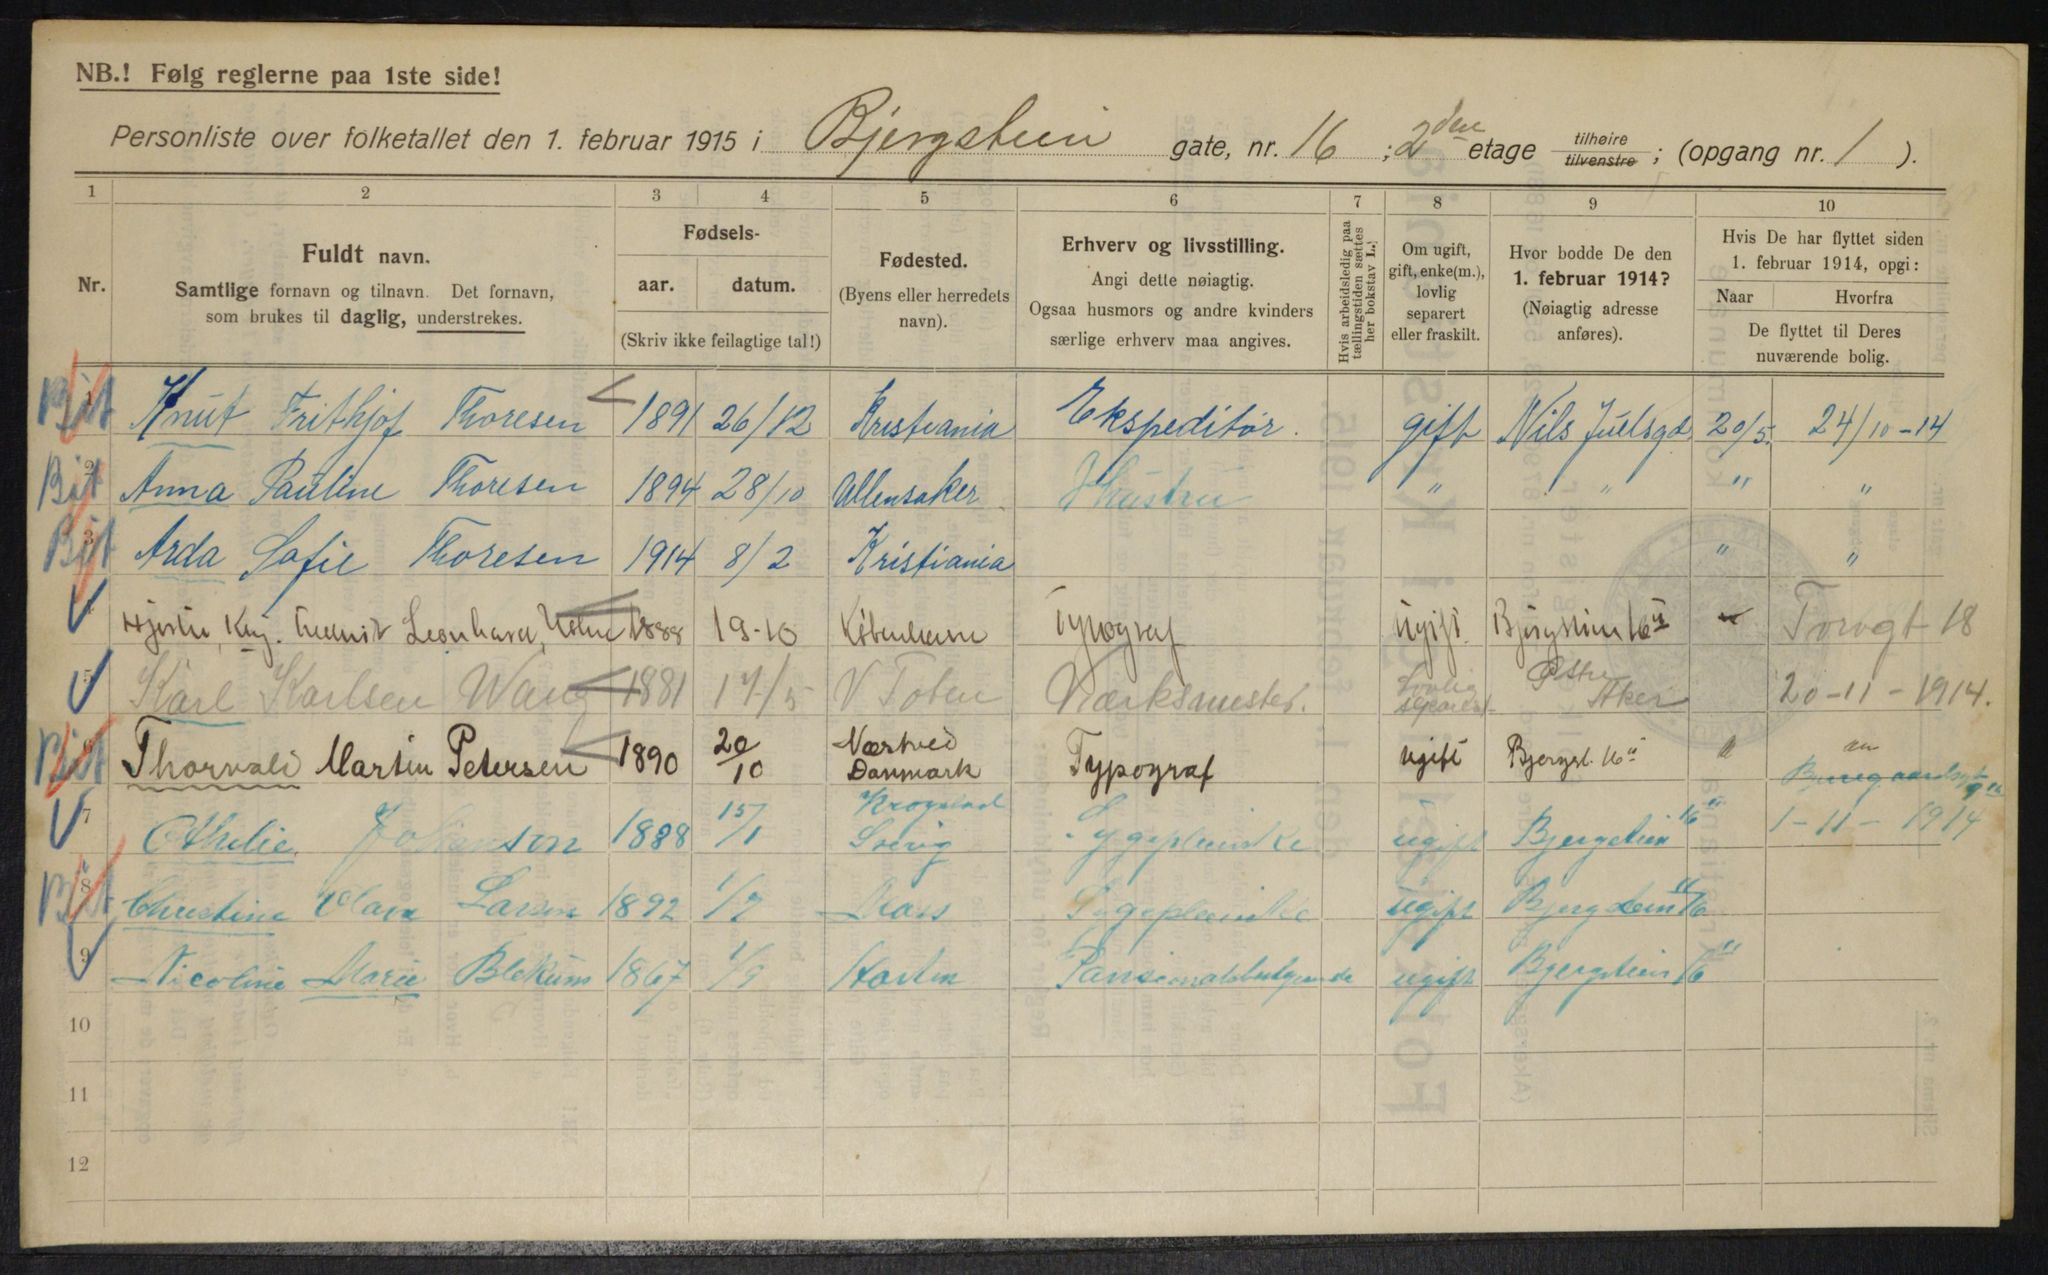 NB.! Følg reglerne paa 1ste side!
Personliste over folketallet den 1. februar 1915 i Bjergstien gate, nr. 16 ; 2den etage tilhøire tilvenstre ; (opgang nr. 1 ).
1 2 3 4 5 6 7 8 9 10
Nr.
Fuldt navn.
Samtlige fornavn og tilnavn. Det fornavn,
som brukes til daglig, understrekes.
Fødsels-
aar. datum.
(Skriv ikke feilagtige tal!)
Fødested.
(Byens eller herredets
navn).
Erhverv og livsstilling.
Angi dette nøiagtig.
Ogsaa husmors og andre kvinders
særlige erhverv maa angives.
Hvis arbeidsledig paa
tællingstiden sættes
her bokstav L.
Om ugift,
gift, enke(m.),
lovlig
separert
eller fraskilt.
Hvor bodde De den
1. februar 1914?
(Nøiagtig adresse
anføres).
Hvis De har flyttet siden
1. februar 1914, opgi:
Naar Hvorfra
De flyttet til Deres
nuværende bolig.
1 Knut Frithjof Thoresen 1891 26/12 Kristiania Ekspeditør. gift Nils Juelsgd 20/5. 24/10-14
2 Anna Pauline Thoresen 1894 28/10 Ullensaker Hustru " " " "
3 Arda Sofie Thoresen 1914 8/2 Kristiania " "
4 Kaj. Leonhard 1888 19-10 København Typograf ugift. Bjergstien 16 Torvgt 18
5 Karl Karlsen Wang 1881 17/5 V Toten Værksmester. Lovlig separert Østre Aker 20-11-1914.
6 Thorvald Martin Petersen 1890 20/10 Næstved Danmark Typograf ugift Bjergst. 16
7 Othelie Johanson 1888 15/1 Sygepleierske ugift Bjergstien 16 1-11-1914
8 Christine Larsen 1892 1/7 Moss Sygepleierske ugift Bjergstien 16
9 Nicoline Marie Blekum 1867 1/9 Pansionatbestyrerinde ugift Bjergstien 16
10
11
12